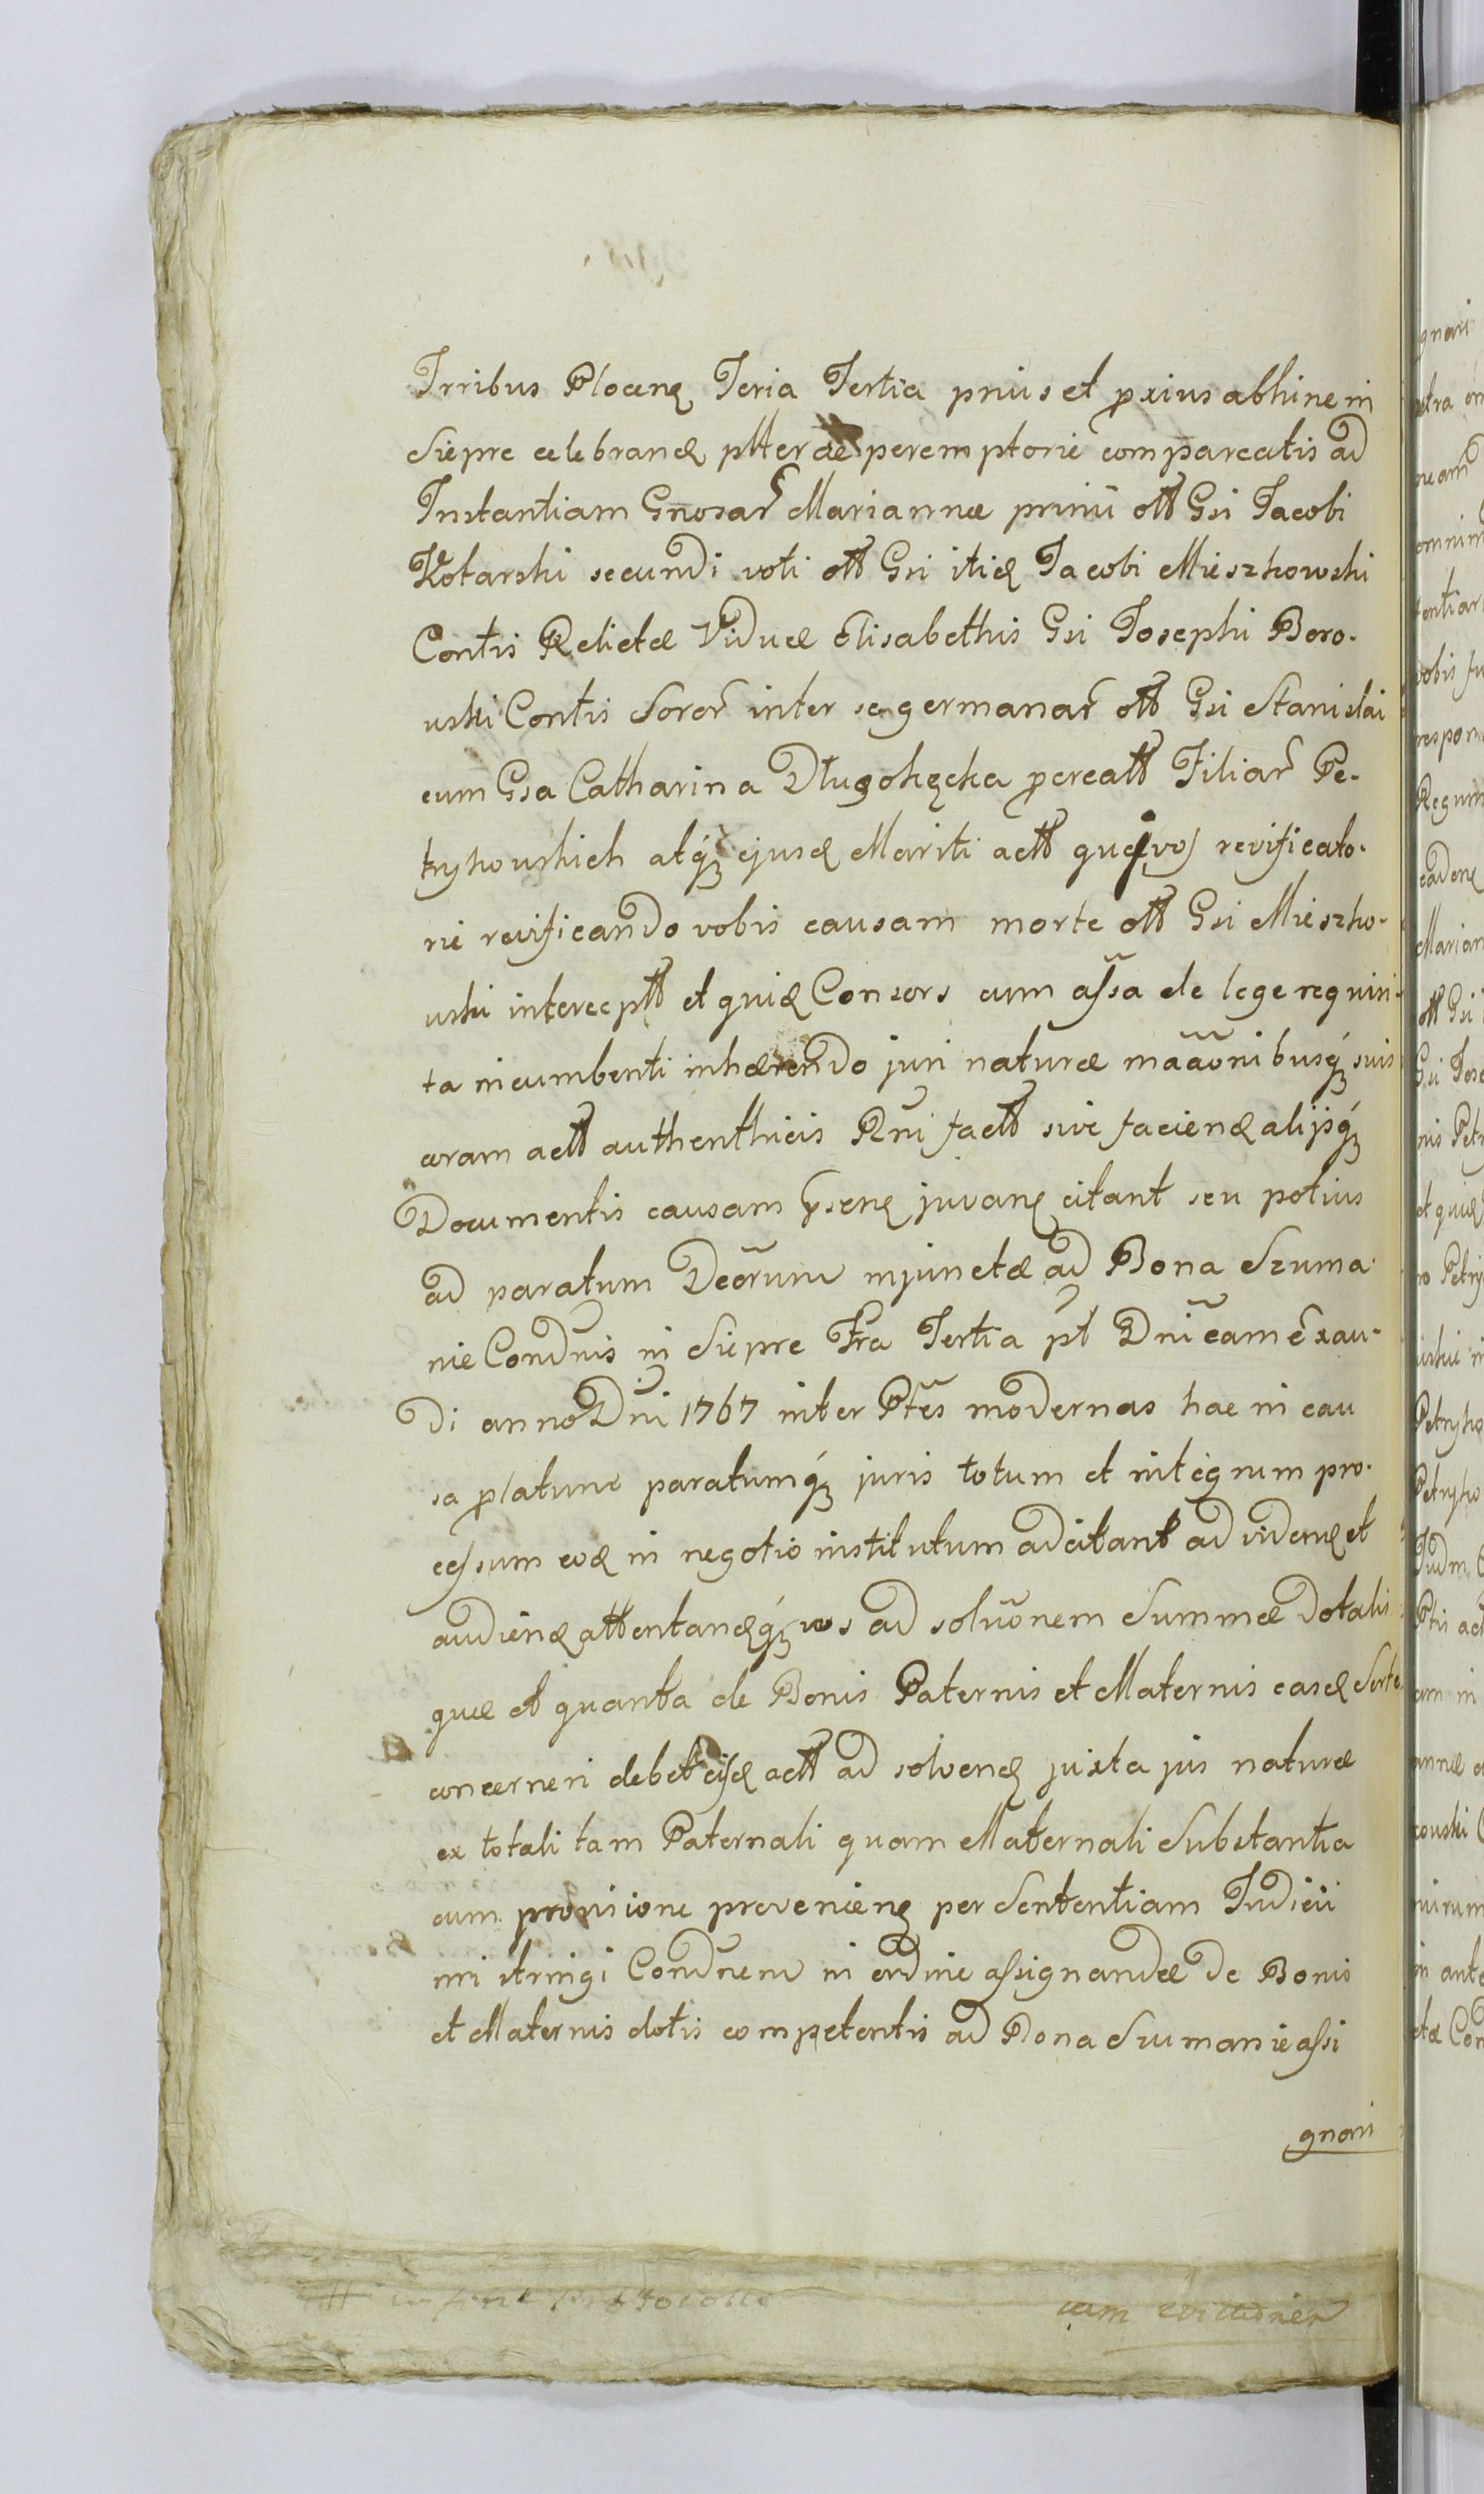 Trribus Plocen Feria Tertia prius et proxius abhinc in
Siepre celebrand pltter ac peremptorie compareatis ad
Instantiam Gnosar Mariannæ primū ott Gsi Jacobi
Kotarski secundi voti ott Gsi itid Jacobi Mieszkowski
Contis Relictæ Viduæ Elisabethis Gsi Josephi Boro-
wski Contis Soror inter se germanar ott Gsi Stanislai
cum Gsa Catharina Długołęcka procreatt Filiar Pe-
trykowskich atq ejusd Mariti actt revificato-
rie revificando vobis causam morte ott Gsi Mieszko-
wski interceptt et quid Consors cum assa de lege requisi-
ta incumbenti inhærendo juri naturæ māāonibusq suis
coram actt authenthicis Rni factt sive faciend alijsq
Documentis causam psen juvan citant seu potius
ad paratum Decorum injunctæ ad Bona Szuma-
nie Condnis in Siepre Fra Tertia pt Dnicam Exau-
di anno Dni 1767 inter Ptes modernas hac in cau
sa platum paratumq juris totum et integrum pro-
cessum eod in negotio institutum adcitant ad viden et
audiend attentandq vos ad soluonem Summæ dotalis
quæ et quanta de Bonis Paternis et Maternis easd Sorte
concerneri debet eisd actt ad solvend juxta jus naturæ
ex totali tam Paternali quam Maternali Substantia
cum provisione provenien per Sententiam Judicii
nri stringi Condnem in ordine assignandæ de Bonis
et Maternis dotis competentis ad Bona Szumanie assi
gnari
in fine protocolli
cum evictionem